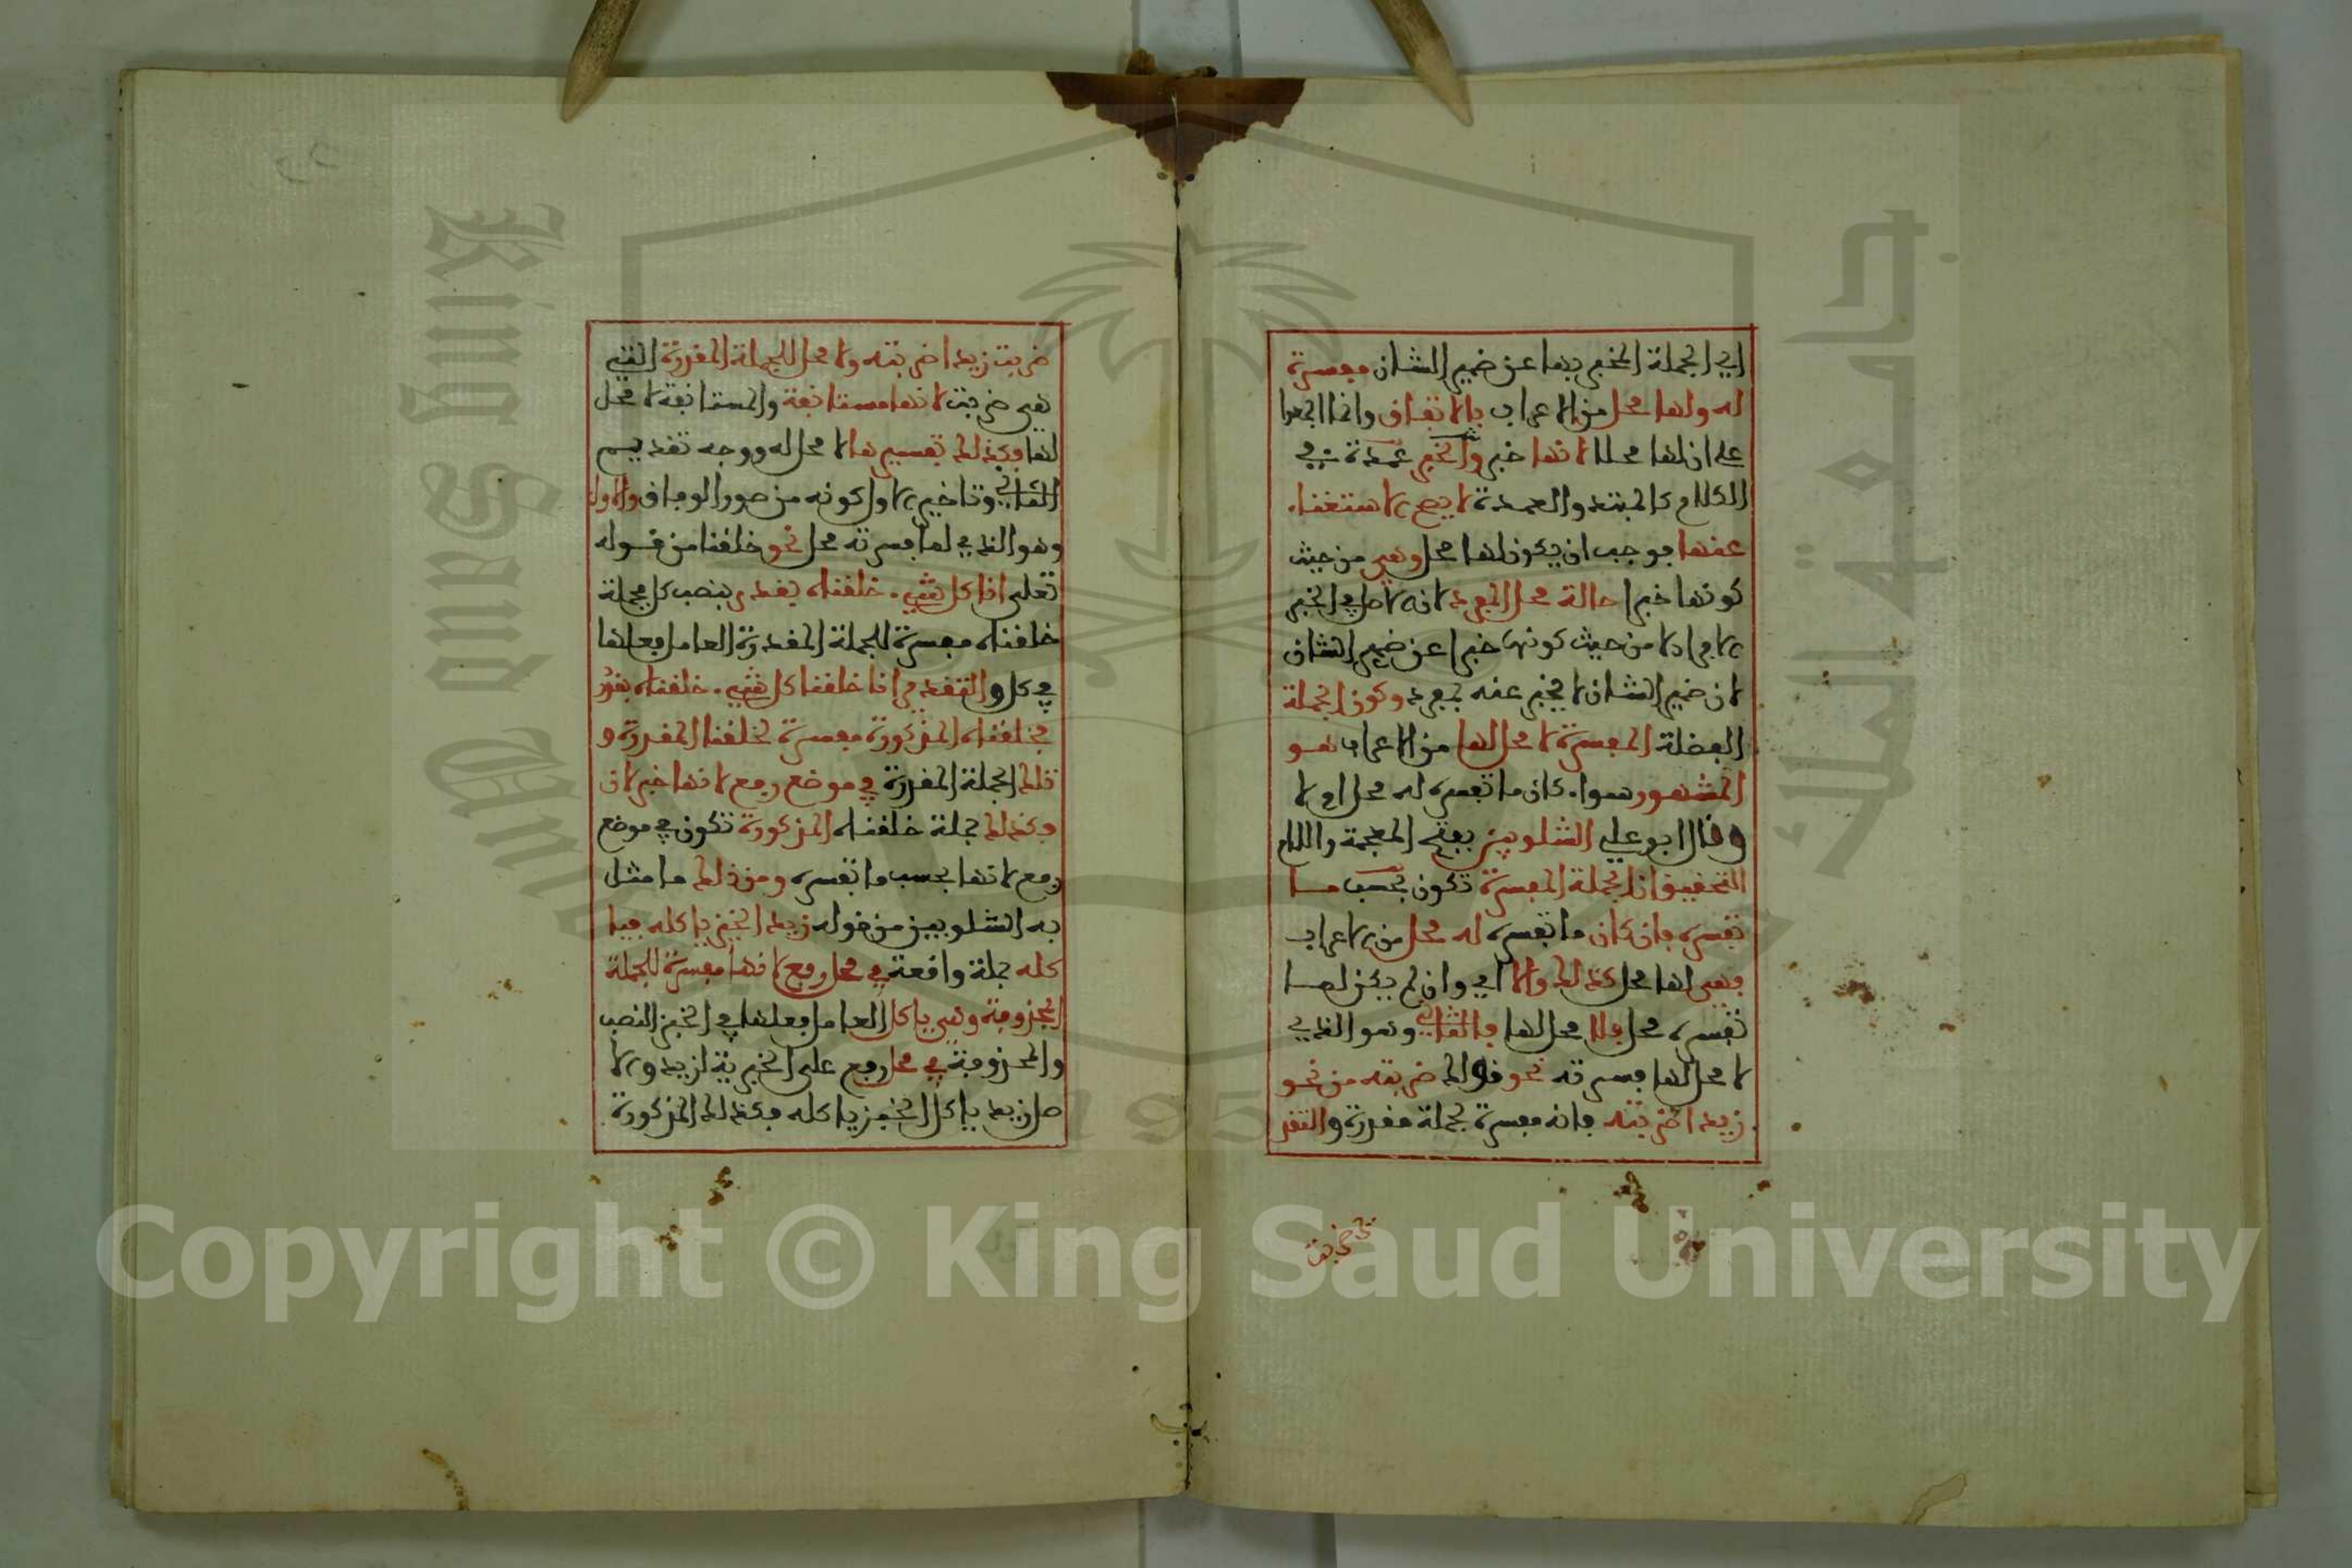 اي الجملة المخبر بها عن ضمير الشان مفسرة
له ولها محل من الاعراب بالاتفاق وانما اجمعوا
على ان لها محلا لانها خبر والخبر عمدة في
الكلام كالمبتدا والعمدة لا يصح الاستغناء
عنها فوجب ان يكون لها محل وهي من حيث
كونها خبرا حالة محل المفرد لان الاصل في الخبر
الافراد لا من حيث كونها خبرا عن ضمير الشان
لان ضمير الشان لا يخبر عنه بمفرد وكون الجملة
الفضلة المفسرة لا محل لها من الاعراب هو
المشهور سواء كان ما تفسره له محل او لا
وقال ابو علي الشلوبين بفتح المعجمة واللام
التحقيق ان الجملة المفسرة تكون بحسب ما
تفسره فان كان ما تفسره له محل من الاعراب
فهي لها محل كذلك والا اي وان لم يكن لما
تفسره محل فلا محل لها فالثاني وهو الذي
لا محل لما فسرته نحو قولك ضربته من نحو
زيدا ضربته فانه مفسرة لجملة مقدرة والتقد
ضربت زيدا ضربته ولا محل للجملة المقدرة التي
هي ضربت لانها مستانفة والمستانفة لا محل
لها وكذلك تفسيرها لا محل له ووجه تقديم
الثاني وتاخير الاول كونه من صور الوفاق والاول
وهو الذي لما فسرته محل نحو خلقنا من قوله
تعلى انا كل شيء خلقناه بقدر بنصب كل فجملة
خلقناه مفسرة للجملة المقدرة العامل فعلها
في كل والتقدير انا خلقنا كل شيء خلقناه بقدر
فخلقناه المذكورة مفسرة لخلقنا المقدرة و
تلك الجملة المقدرة في موضع رفع لانها خبر لان
وكذلك جملة خلقناه المذكورة تكون في موضع
رفع لانها بحسب ما تفسره ومن ذلك ما مثل
به الشلوبين من قوله زيد الخبز ياكله فيا
كله جملة واقعة في محل رفع لانها مفسرة للجملة
المحذوفة وهي ياكل العامل فعلها في الخبز النصب
والمحذوفة في محل رفع على الخبرية لزيد والا
صل زيد ياكل الخبز ياكله فكذلك المذكورة
Copyright © King Saud University
King Saud
جامعة الملك
195